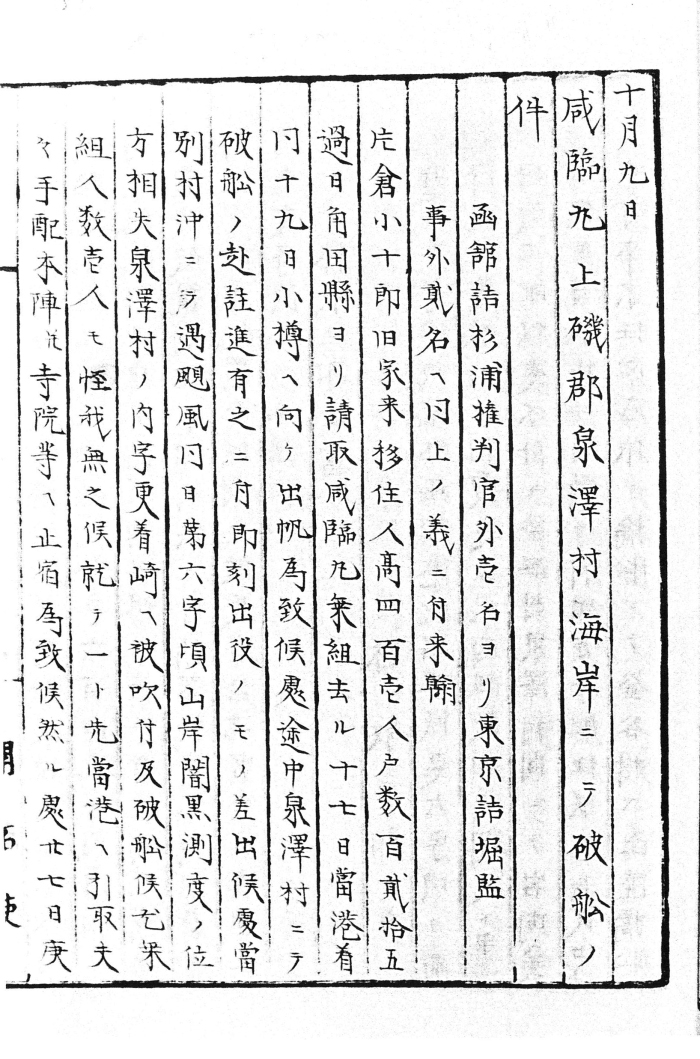 十月九日
咸臨丸上磯郡泉澤村海岸ニテ破舩ノ
件
函館詰杉浦権判官外壱名ヨリ東京詰堀監
事外貳名ヘ同上ノ義ニ付来翰
片倉小十郎旧家来移住人髙四百壱人戸数百貳拾五
過日角田縣ヨリ請取咸臨丸乗組去ル十七日當港着
同十九日小樽ヘ向ケ出帆為致候處途中泉澤村ニテ
破舩ノ赴註進有之ニ付即刻出役ノモノ差出候處當
別村沖ニテ遇颶風同日第六字頃山岸闇黒測度ノ位
方相失泉澤村ノ内字更着崎ヘ被吹付及破舩候尤乗
組人数壱人モ怪我無之候就テ一ト先當港ヘ引取夫
々手配本陣凡寺院等ヘ止宿為致候然ル處廿七日庚
開拓使